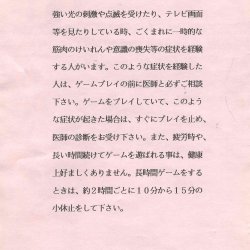 強い光の刺激や点滅を受けたり、テレビ画面
等を見たりしている時、ごくまれに一時的な
筋肉のけいれんや意識の喪失等の症状を経験
する人がいます。このような症状を経験した
人は、ゲームプレイの前に医師と必ずご相談
下さい。ゲームをプレイしていて、このよう
な症状が起きた場合は、すぐにプレイを止め、
医師の診断をお受け下さい。また、疲労時や、
長い時間続けてゲームを遊ばれる事は、健康
上好ましくありません。長時間ゲームをする
ときは、約２時間ごとに１０分から１５分の
小休止をして下さい。